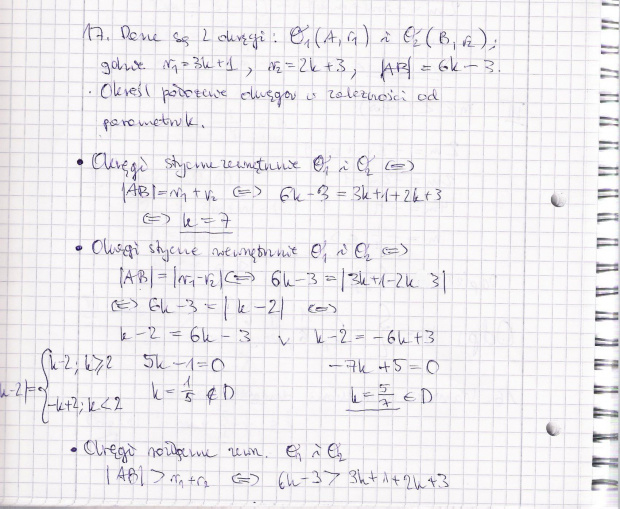 17. Dane są 2 okręgi: O₁(A, r₁) i O₂(B, r₂);
gdzie r₁=3k+1, r₂=2k+3, |AB| = 6k-3.
Określ położenie okręgów w zależności od
parametru k.
• Okręgi styczne zewnętrznie O₁ i O₂ ⇔
|AB|=r₁+r₂ ⇔ 6k-3 = 3k+1+2k+3
⇔ k = 7
• Okręgi styczne wewnętrznie O₁ i O₂ ⇔
|AB|=|r₁-r₂| ⇔ 6k-3=|3k+1-2k 3|
⇔ 6k-3 = |k-2| ⇔
k-2 = 6k-3 ∨ k-2 = -6k+3
k-2|= { k-2; k≥2 5k-1=0 -7k+5=0
-k+2; k<2 k=1/5 ∉ D k=5/7 ∈ D
• Okręgi rozłączne zewn. O₁ i O₂
|AB| > r₁+r₂ ⇔ 6k-3 > 3k+1+2k+3